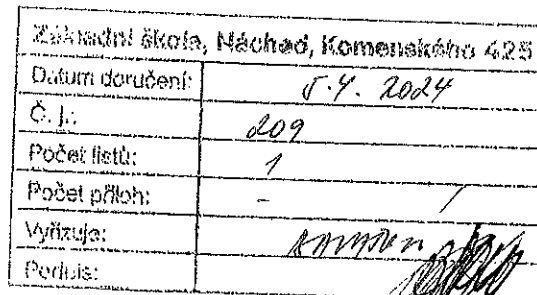 Základní škola, Náchod, Komenského 425
Datum doručení: 5.4. 2024
Č. j.: 209
Počet listů: 1
Počet příloh: - /
Vyřizuje:
Podpis: